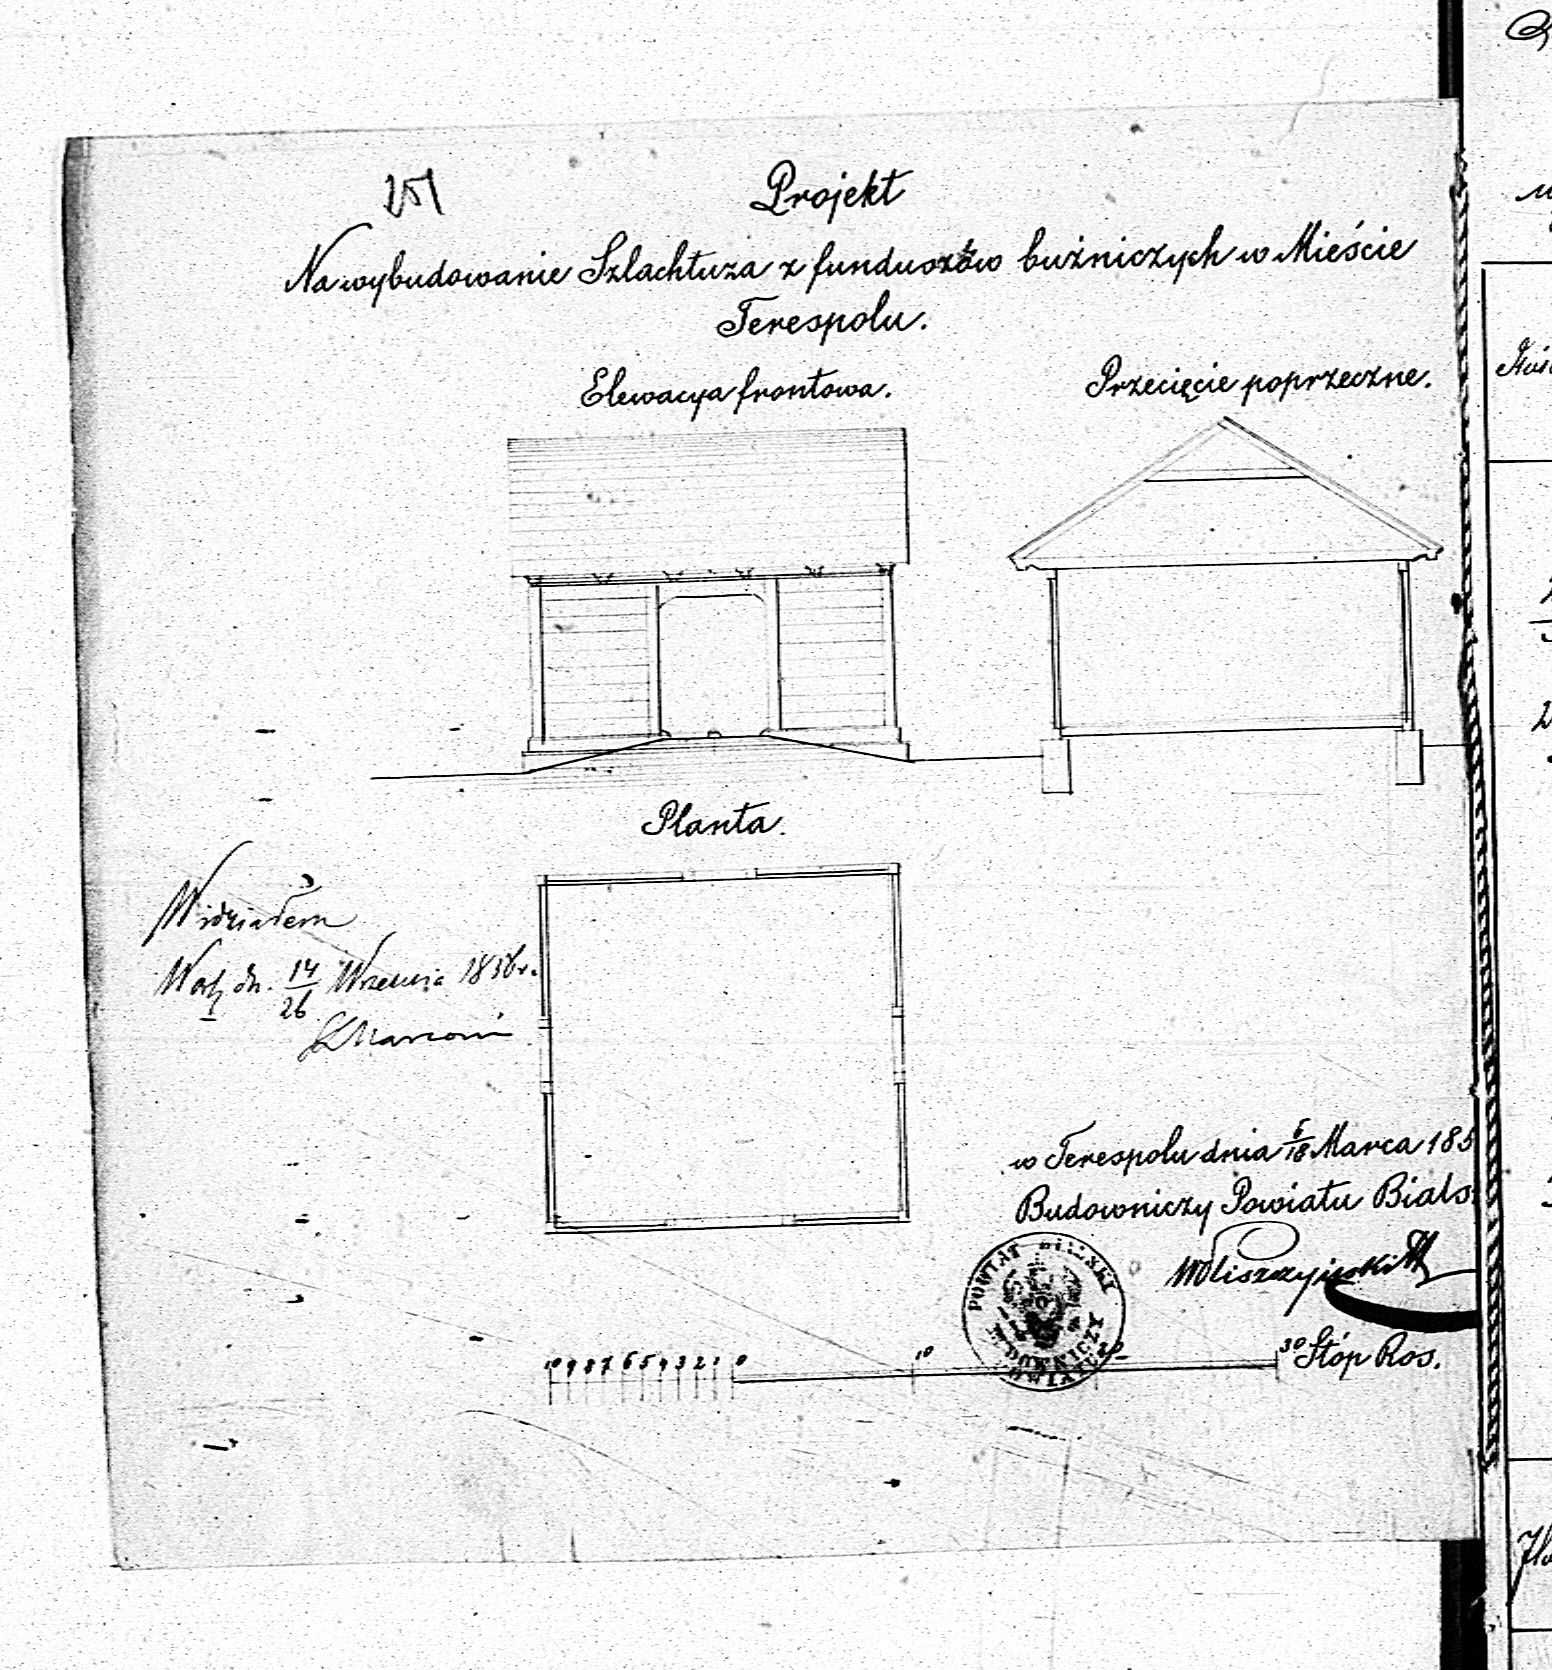 251
Projekt
Na wybudowanie Szlachtuza z funduszów bużniczych w Mieście
Terespolu.
Elewacya frontowa.
Przecięcie poprzeczne.
Planta.
Widziałem
dn. 14/26 Września 1856 r.
Marconi
w Terespolu dnia 6/18 Marca 185
Budowniczy Powiatu Bials
POWIAT BIALSKI
BUDOWNICZY POWIATU
10 9 8 7 6 5 4 3 2 1 0 10 20 30 Stóp Ros.